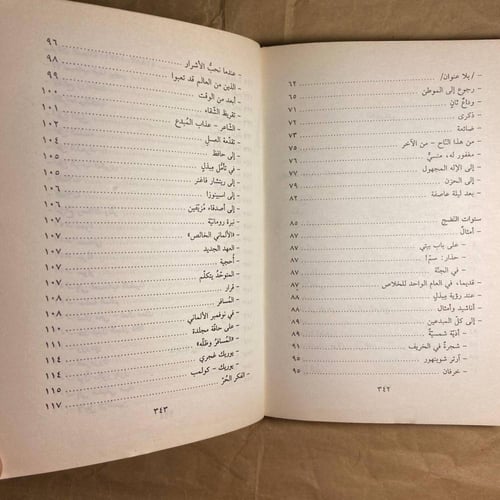 - /بلا عنوان/ ........ ٦٢
- رجوع إلى الموطن ........ ٦٥
- وداعٌ ثانٍ ........ ٧١
- ذكرى ........ ٧٢
- ضائعة ........ ٧٣
- من هذا التّاج - من الآخر ........ ٧٥
- مغفور له، منسيٌّ ........ ٧٧
- إلى الإله المجهول ........ ٧٧
- إلى الحزن ........ ٧٩
- بعد ليلة عاصفة ........ ٨٢
سنوات النّضج ........ ٨٥
- أمثالٌ ........ ٨٧
- على باب بيتي ........ ٨٧
- حذار: سمّ! ........ ٨٧
- في الجنّة ........ ٨٧
- قديما، في العام الواحد للخلاص ........ ٨٧
- عند رؤية بيذلي ........ ٨٧
- أناشيد وأمثال ........ ٨٧
- إلى كلّ المبدعين ........ ٨٨
- أذيّة شمسيّة ........ ٨٩
- شجرةٌ في الخريف ........ ٩١
- أرتر شوبنهور ........ ٩٥
- خرفان ........ ٩٥
٣٤٢
- عندما نحبُّ الأشرار ........ ٩٦
- الذين من العالم قد تعبوا ........ ٩٨
- أبعد من الوقت ........ ٩٩
- تقريظ الشّقاء ........ ١٠٠
- الشّاعر - عذاب المُبدع ........ ١٠١
- تقدّمة العسل ........ ١٠٢
- إلى حافظ ........ ١٠٤
- في تأمّل بيذلي ........ ١٠٥
- إلى ريتشار فاغنر ........ ١٠٥
- إلى اسبينوزا ........ ١٠٦
- إلى أصدقاء مُزيّفين ........ ١٠٦
- نبرة رومانيّة ........ ١٠٧
- «الألماني الخالص» ........ ١٠٧
- العهد الجديد ........ ١٠٧
- أُحجية ........ ١٠٧
- المتوحّد يتكلّم ........ ١٠٧
- قرار ........ ١٠٨
- المُسافر ........ ١٠٨
- في نوفمبر الألماني ........ ١١٠
- على حافّة مجلدة ........ ١١١
- «المُسافر وظلّه» ........ ١١٤
- يوريك غجري ........ ١١٤
- يوريك - كولمب ........ ١١٥
- الفكر الحُرّ ........ ١١٧
٣٤٣